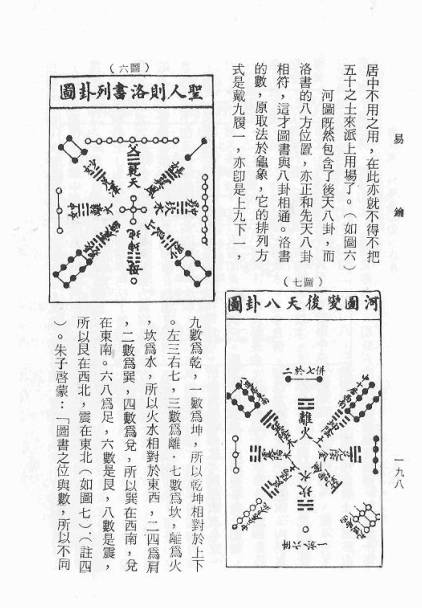 易
一九八
居中不用之用，在此亦就不得不把
五十之土來派上用場了。（如圖六）
河圖既然包含了後天八卦，而
洛書的八方位置，亦正和先天八卦
相符，這才圖書與八卦相通。洛書
的數，原取法於龜象，它的排列方
式是戴九履一，亦卽是上九下一，
（圖六）
聖人則洛書列卦圖
父
乾
天
地
坤
母
（圖七）
河圖變後天八卦圖
離
火
水
坎
九數爲乾，一數爲坤，所以乾坤相對於上下
。左三右七，三數爲離．七數爲坎，離爲火
，坎爲水，所以火水相對於東西，二四爲肩
，二數爲巽，四數爲兌，所以巽在西南，兌
在東南。六八爲足，六數是艮，八數是震，
所以艮在西北，震在東北（如圖七）（註四
）。朱子啓蒙：「圖書之位與數，所以不同